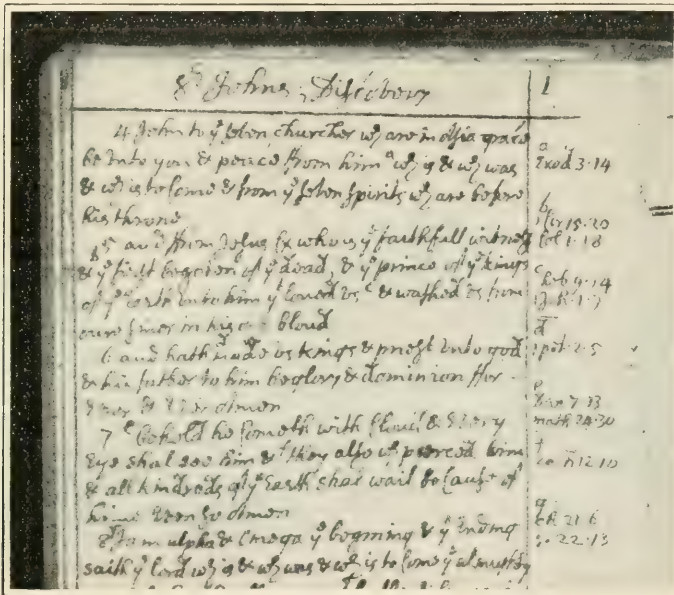 St Johns Discovery 1
4 John to ye seven churches wch are in Assia grace
be unto you & peace ffrom him a wch is & wch was
& wch is to Come & from ye seven spirits wch are before
his throne
b 5 and ffrom Jesus who is ye faithfull witness
& ye first begoten of ye dead, & ye prince of ye kings
of ye earth unto him yt loved us c & washed us from
oure sines in his bloud
6 and hath d made us kings & priest unto god
& his father to him be glory & dominion ffor
Amen
7 e Behold he Cometh with Cloud & Every
Eye shal see him & f they also wch pierced him
& all kindreds of ye Earth shal wail because of
him Even so Amen
8 g I am alpha & Omega ye begining & ye Ending
saith ye lord wch is & wch was & wch is to Come ye almughty
a
Exod 3·14
b
15·20
Col 1·18
c
heb 9·14
d
1 pet 2·5
e
Dan 7·13
math 24·30
f
12·10
g
21·6
22·13